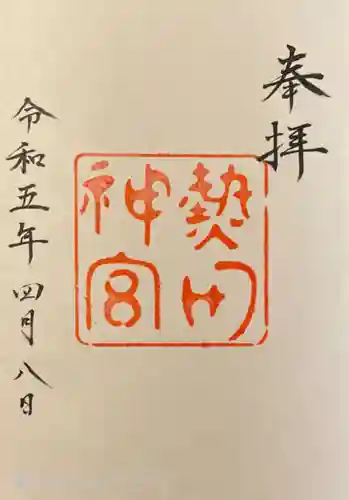 奉拝
熱田
神宮
令和五年四月八日